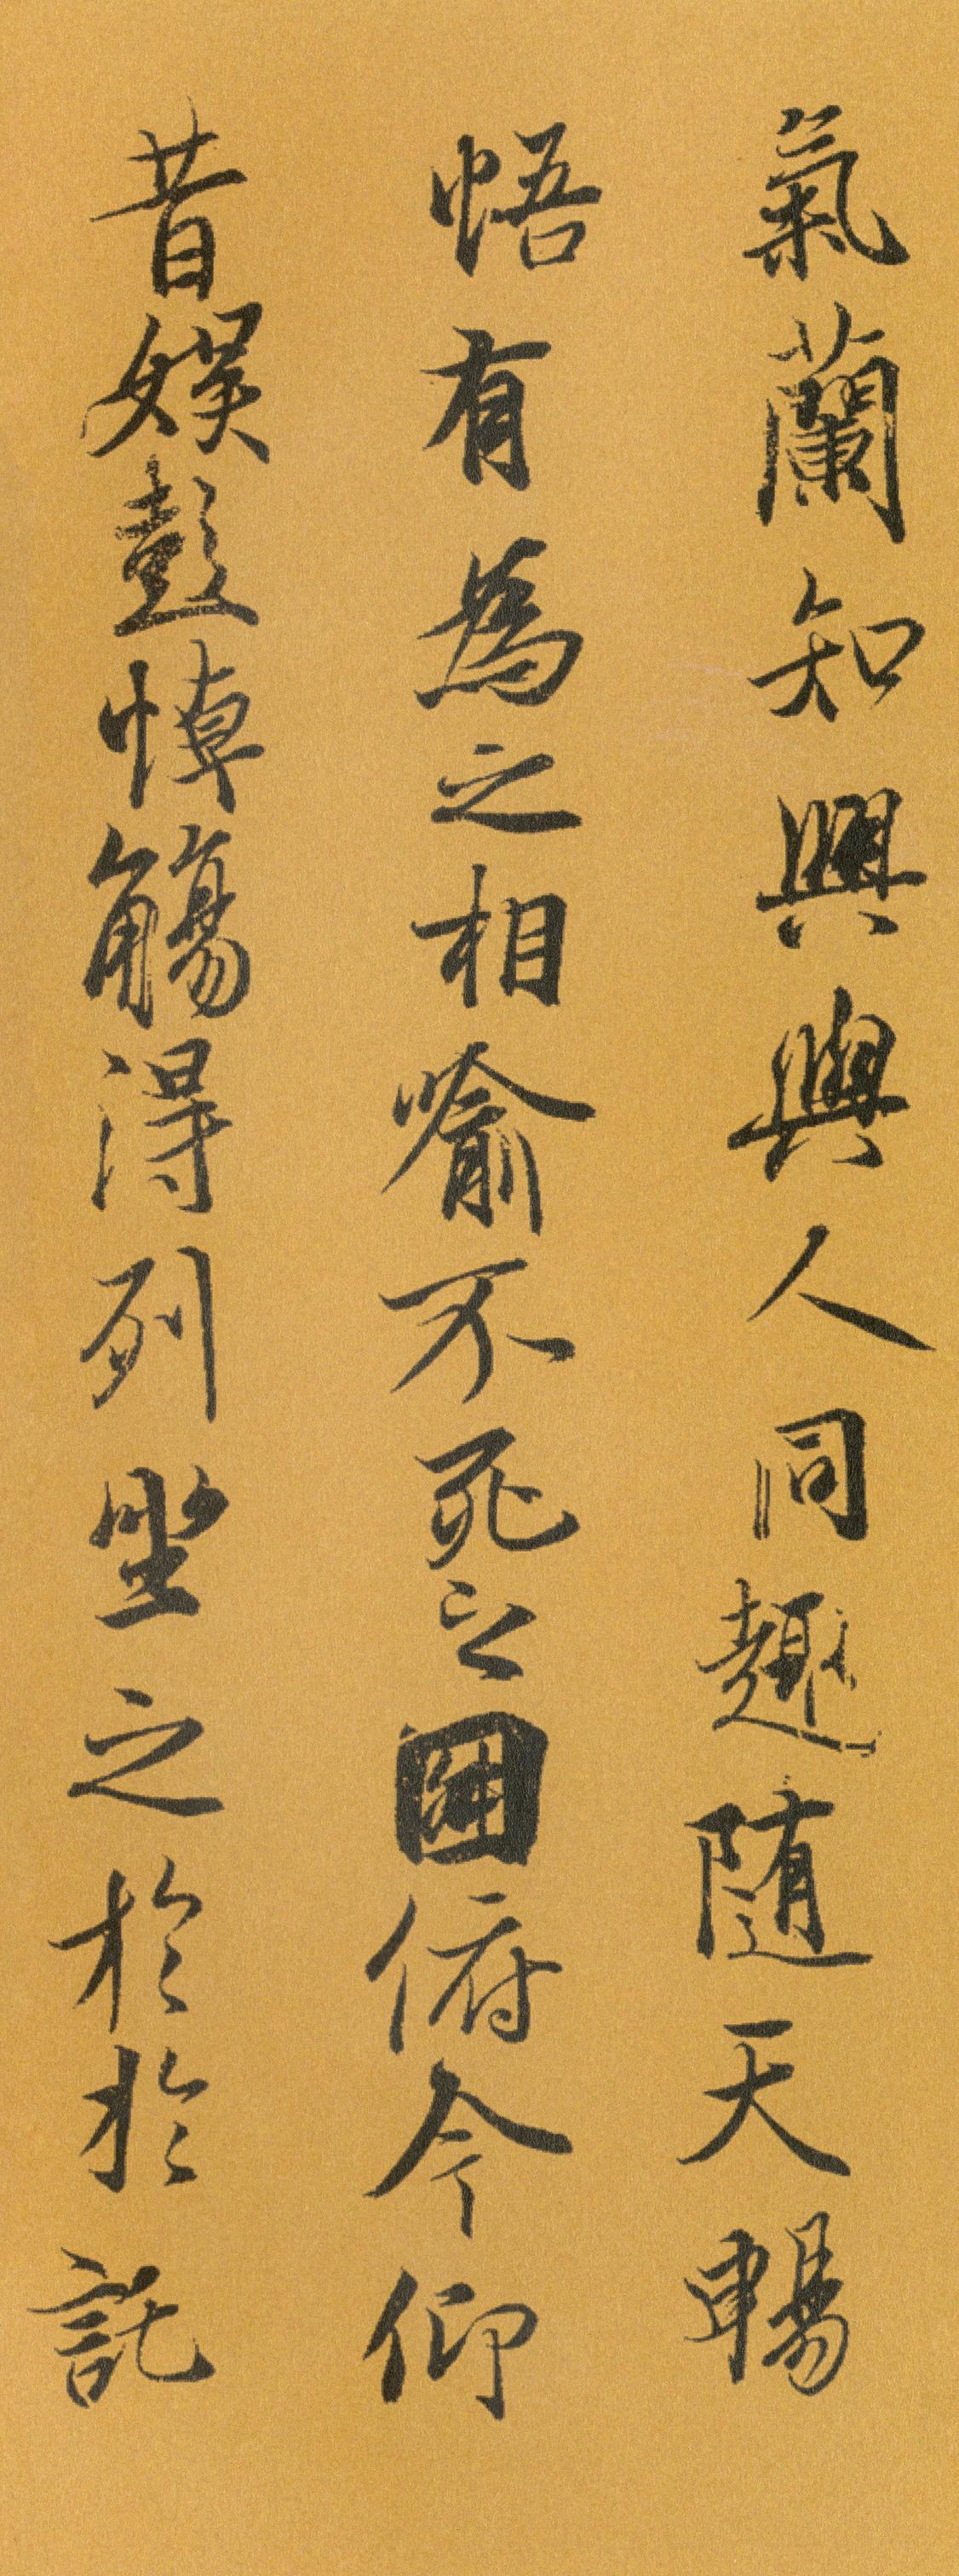 氣蘭知興與人同趣隨天暢
悟有為之相喻不死之因俯今仰
昔娛彭悼觴得列坐之於於託